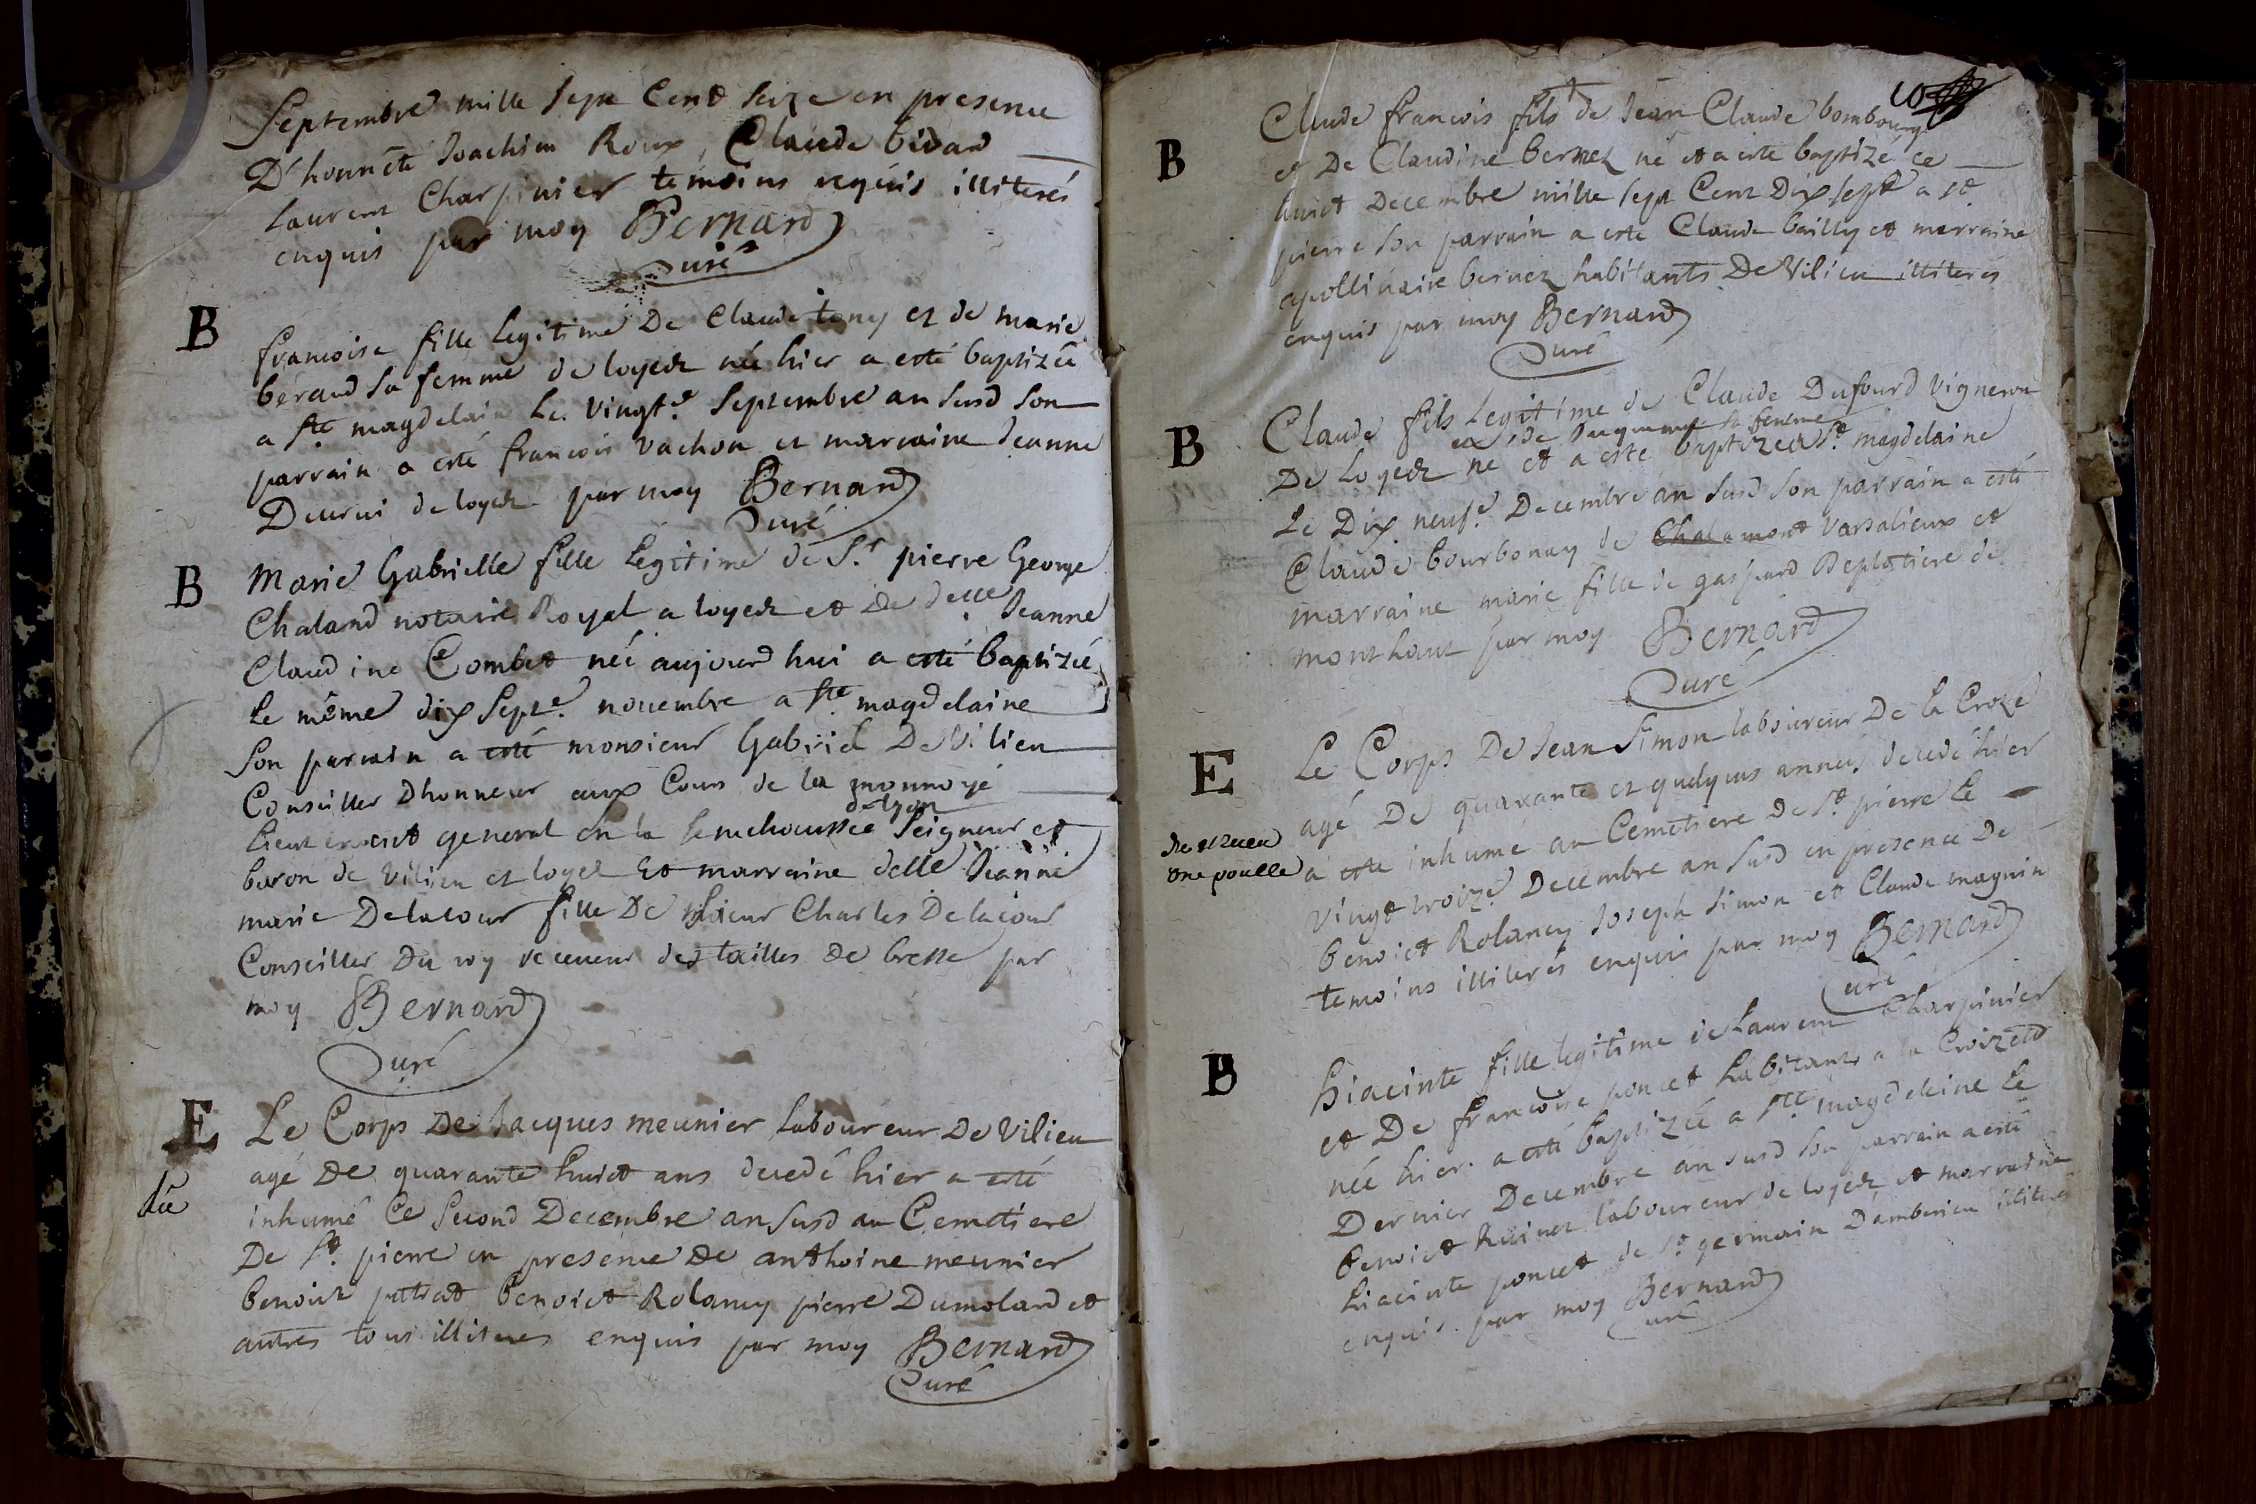 Septembre mille sept Cent seize en presence
D'honnête Joachim Roux, Claude bidard
Laurent Charpinier temoins requis illiterés
enquis par moy Bernard
Curé
B
francoise fille legitime De Claude tony et de marie
beraud sa femme de loyedz née hier a esté baptizée
a Ste magdelain Le vingte Septembre an susd son
parrain a esté francois vachon et marraine Jeanne
de loyedz par moy Bernard
Curé
B
Marie Gabrielle fille Legitime de Sr pierre George
Chaland notaire Royal a loyedz et De delle Jeanne
Claudine Combet née aujourd hui a esté baptizée
le même dix septe novembre a Ste magdelaine
son parrain a esté monsieur Gabriel De Vilieu
Conseiller Dhonneur aux Cours de la monnoyé
de lyon
Lieutenant general en la senechaussée seigneur et
baron de vilieu et loyedz Et marraine delle Jeanne
marie Delacour fille De Charles Delacour
Conseiller Du roy receveur des tailles De bresse par
moy Bernard
Curé
E
Le Corps De Jacques meunier laboureur De Vilieu
agé De quarante huict ans decedé hier a esté
du
inhumé Ce second Decembre an susd au Cemetiere
De St pierre en presence De anthoine meunier
benoist benoict Rolancy pierre Dumolard et
autres tous illiteres enquis par moy Bernard
Curé
10
B
Claude francois fils de Jean Claude bombourg
et De Claudine bernez né et a esté baptizé ce
huict Decembre mille sept Cent Dix sept a St
pierre son parrain a esté Claude bailly et marraine
apollinaire bernez habitants De Vilieu illiterés
enquis par moy Bernard
Curé
B
Claude fils legitime de Claude Dufourd vigneron
et de sa femme
De loyedz né et a esté baptizé a Ste magdelaine
Le Dix neufe Decembre an susd son parrain a esté
Claude bourbonay de Chalamont varsalieux et
marraine marie fille de gaspard Deplatiere de
monthout par moy Bernard
Curé
E
Le Corps De Jean Simon laboureur De la Croze
agé De quarante et quelques années decedé hier
a esté inhumé au Cemetiere de St pierre le
une poulle
vingt troize Decembre an susd en presence De
benoict Rolancy Joseph Simon et Claude magnin
temoins illiterés enquis par moy Bernard
Curé
B
hiacinte fille legitime de Laurent Charpinier
et De francoise poncet habitants a la Croizette
née hier a esté baptizée a Ste magdeleine le
Dernier Decembre an susd son parrain a esté
benoict laboureur de loyedz et marraine
hiacinte poncet de St germain Dambérieu
enquis par moy Bernard
Curé